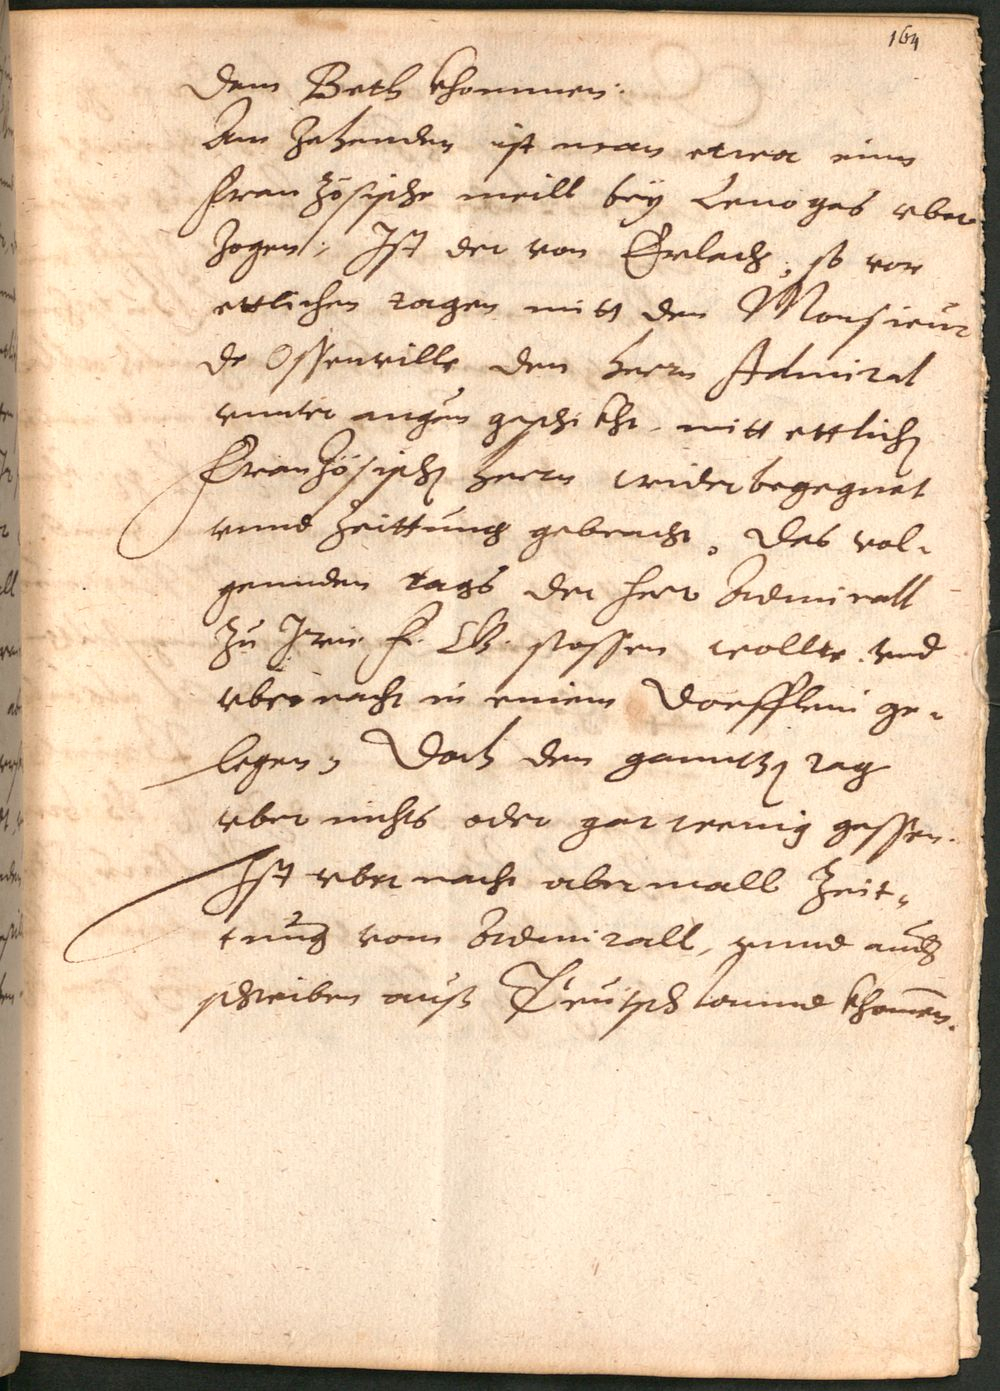 164
dem Beth khommen.
Am Zehenden ist man etwa einn
Französische meill bey Lemoges vber
Zogen, Ist der von Erlach, so vor
ettlichen tagen mitt den Monsieur
de Ossenville den herrn Admiral
vnnter augen geschikht mitt ettlich
Französisch herrn wider begegnet
vnnd Zeittung gebracht. Das vol-
gennden tags der herr Admirall
Zu Irer F. G. stossen wollte vnd
vber nacht in einem Doerfflein ge-
legen, Doch den ganntz tag
vber nichts oder gar wenig gessen.
Ist vber nacht aber mall Zeit-
tung vom Admirall, vnnd auch
schreiben auß Teutschlannd khomen.